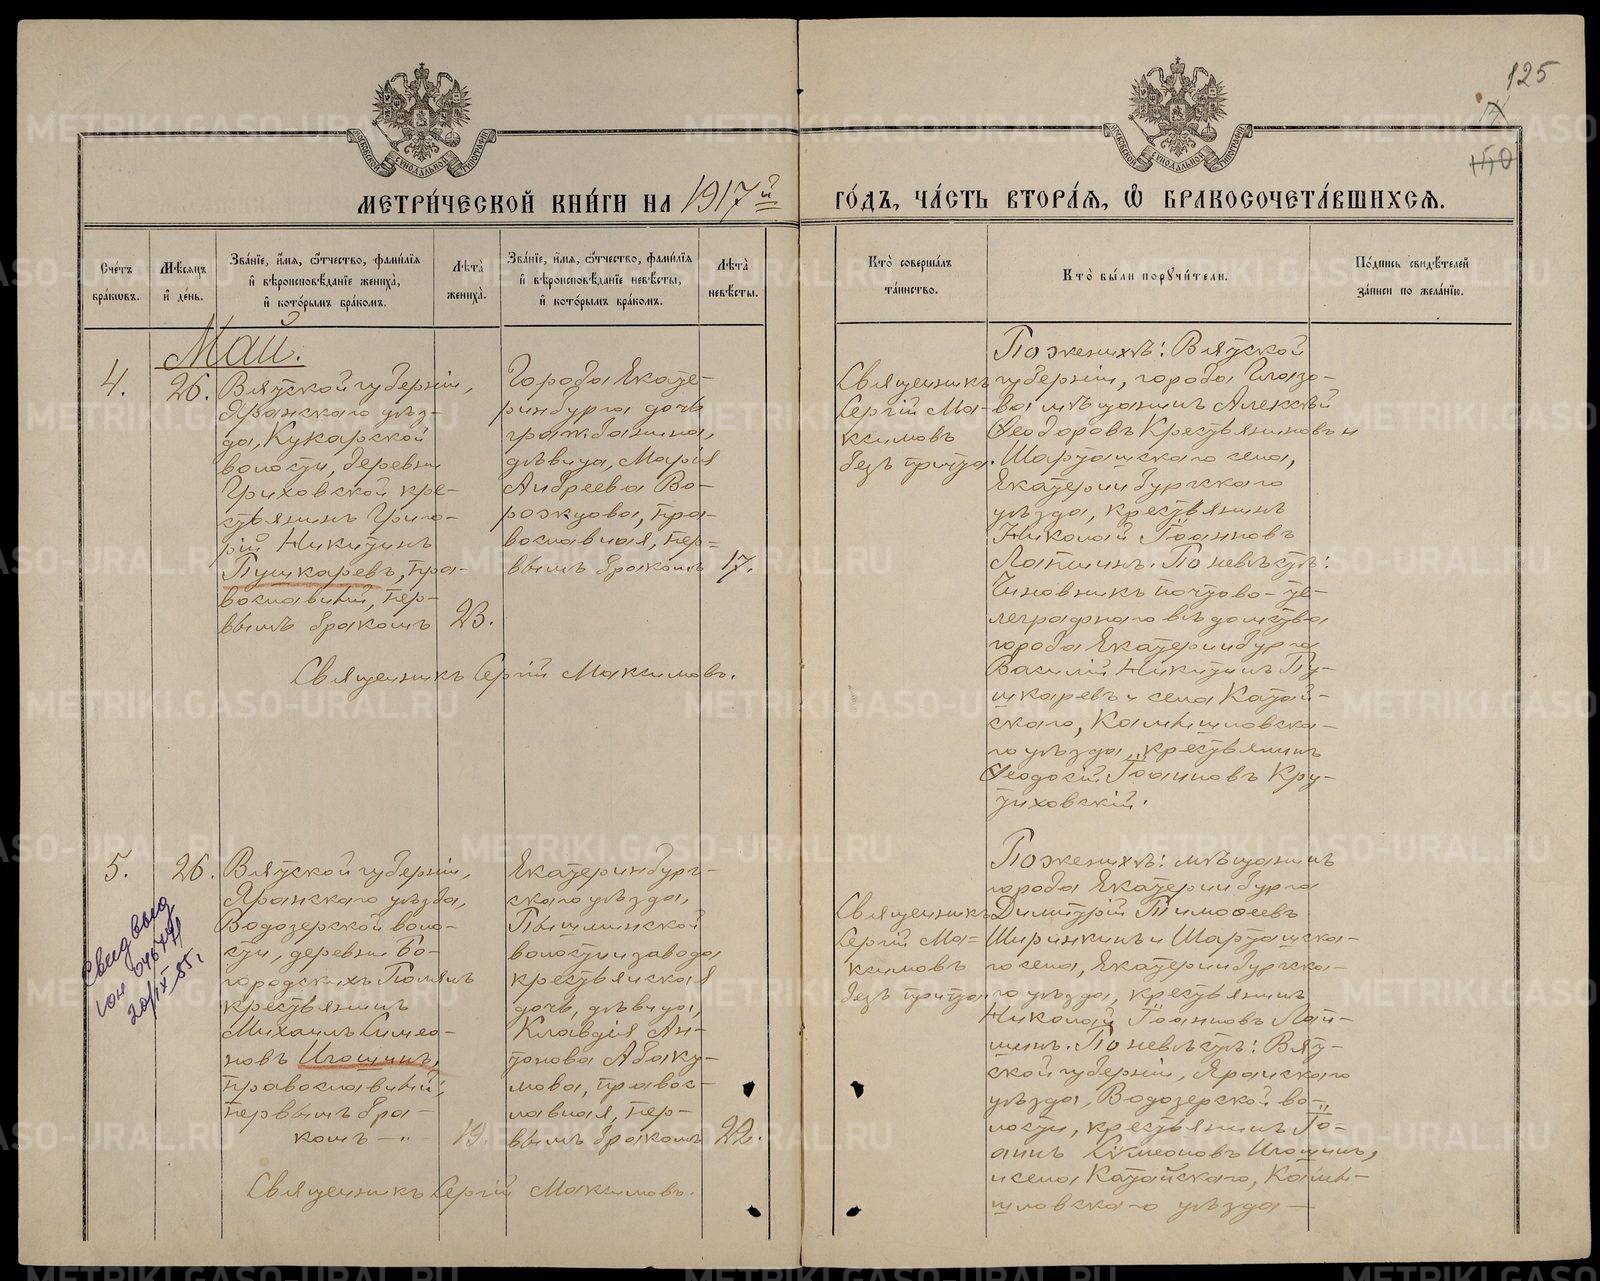 125
17
150
МЕТРИ́ЧЕСКОЙ КНИ́ГИ НА 1917й
ГО́ДЪ, ЧА́СТЬ ВТОРА́Я, Ѽ БРАКОСОЧЕТА́ВШИХСЯ.
Сче́тъ бра́ковъ.
Мѣ́сяцъ и҆ де́нь.
Зва́нїе, и҆́мя, ѻ҆́тчество, фами́лїя
и҆ вѣроисповѣ́данїе жениха̀,
и҆ кото́рымъ бра́комъ.
Лѣта̀ жениха̀.
Зва́нїе, и҆́мя, ѻ҆́тчество, фами́лїя
и҆ вѣроисповѣ́данїе невѣ́сты,
и҆ кото́рымъ бра́комъ.
Лѣта̀ невѣ́сты.
Кто̀ соверша́лъ
та́инство.
Кто̀ бы́ли порꙋчи́тели.
По́дпись свидѣ́телей
за́писи по жела́нїю.
Май.
4.
26.
Вятской губерніи,
Яранскаго уѣз-
да, Кукарской
волости, деревни
Гриховской кре-
стьянинъ Григо-
рій Никитинъ
Пушкаревъ, пра-
вославный, пер-
вымъ бракомъ
23.
Города Екате-
ринбурга дочь
гражданина,
дѣвица, Марія
Андреева Во-
рожцова, пра-
вославная, пер-
вымъ бракомъ
17.
Священникъ Сергій Максимовъ.
Священникъ
Сергій Ма-
ксимовъ
безъ причта.
По женихѣ: Вятской
губерніи, города Глазо-
ва мѣщанинъ Алексѣй
Ѳеодоровъ Крестьяниновъ и
Шарташскаго села,
Екатеринбургскаго
уѣзда, крестьянинъ
Николай Іоанновъ
Лапшинъ. По невѣстѣ:
Чиновникъ почтово-те-
леграфнаго вѣдомства
города Екатеринбурга
Василій Никитинъ Пу-
шкаревъ и села Катай-
скаго, Камышловска-
го уѣзда, крестьянинъ
Ѳеодосій Іоанновъ Кру-
тиховскій.
5.
26.
Вятской губерніи,
Яранскаго уѣзда,
Водозерской воло-
сти, деревни Бо-
городскихъ Полянъ
крестьянинъ
Михаилъ Симео-
новъ Игошинъ,
православный,
первымъ бра-
комъ — „ —
19.
Екатеринбург-
скаго уѣзда,
Пышминской
волости и завода
крестьянская
дочь, дѣвица,
Клавдія Ан-
тонова Абаку-
мова, правос-
лавная, пер-
вымъ бракомъ
22.
Священникъ Сергій Максимовъ.
Свид выд
20/IX 55г
Священникъ
Сергій Ма-
ксимовъ
безъ причта.
По женихѣ: мѣщанинъ
города Екатеринбурга
Димитрій Тимоѳеевъ
Ширинкинъ и Шарташска-
го села, Екатеринбургска-
го уѣзда, крестьянинъ
Николай Іоанновъ Лап-
шинъ. По невѣстѣ: Вят-
ской губерніи, Яранскаго
уѣзда, Водозерской во-
лости, крестьянинъ Іо-
аннъ Симеоновъ Игошинъ,
и села Катайскаго, Камы-
шловскаго уѣзда —